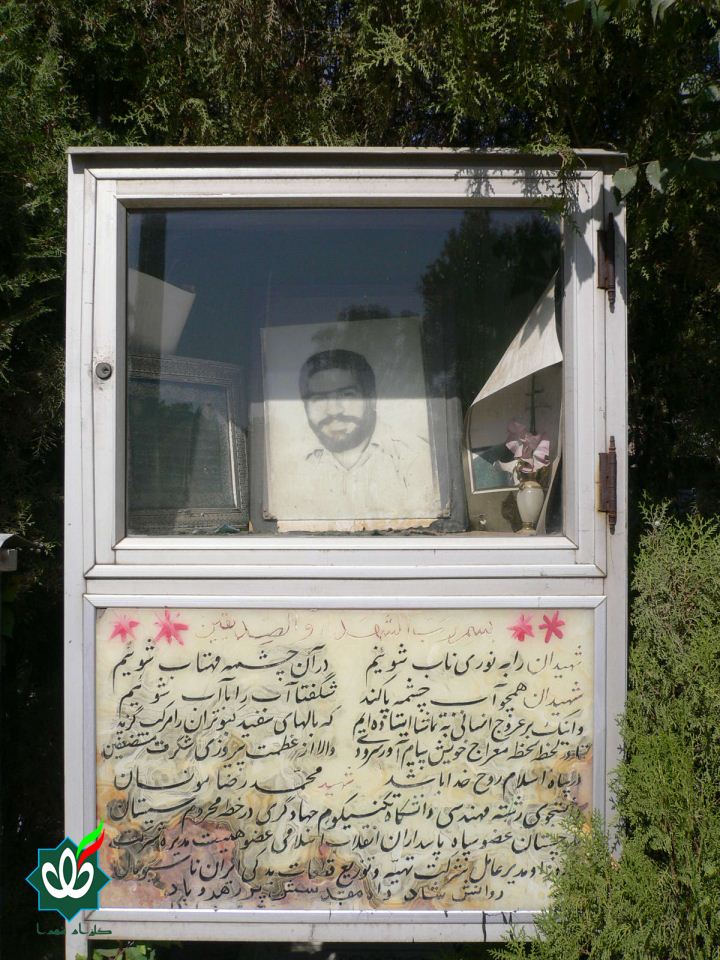 بسم رب الشهداء و الصدیقین
شهیدان را به نوری ناب شوئیم درآن چشمه مهتاب شوئیم
شهیدان همچو آب چشمه پاکند شگفتا آب را با آب شوئیم
و اینک بر عروج انسانی به تماشا ایستاده ایم که بالهای سفید کبوتران را مرکب گزید
و در لحظه لحظه معراج خویش پیام آور سرودی والا از عظمت پیروزی شگرف مستضعفین
و سپاه اسلام روح خدا باشد شهید محمد رضا
دانشجوی رشته مهندسی دانشگاه تکنیکیوم جهادگری در خطه محروم سیستان
و بلوچستان عضو سپاه پاسداران انقلاب اسلامی عضو هیئت مدیره شرکت
و مدیر عامل شرکت تهیه و توزیع قطعات یدکی ایران ناسیونال
روانش شاد راه مقدسش پر رهرو باد